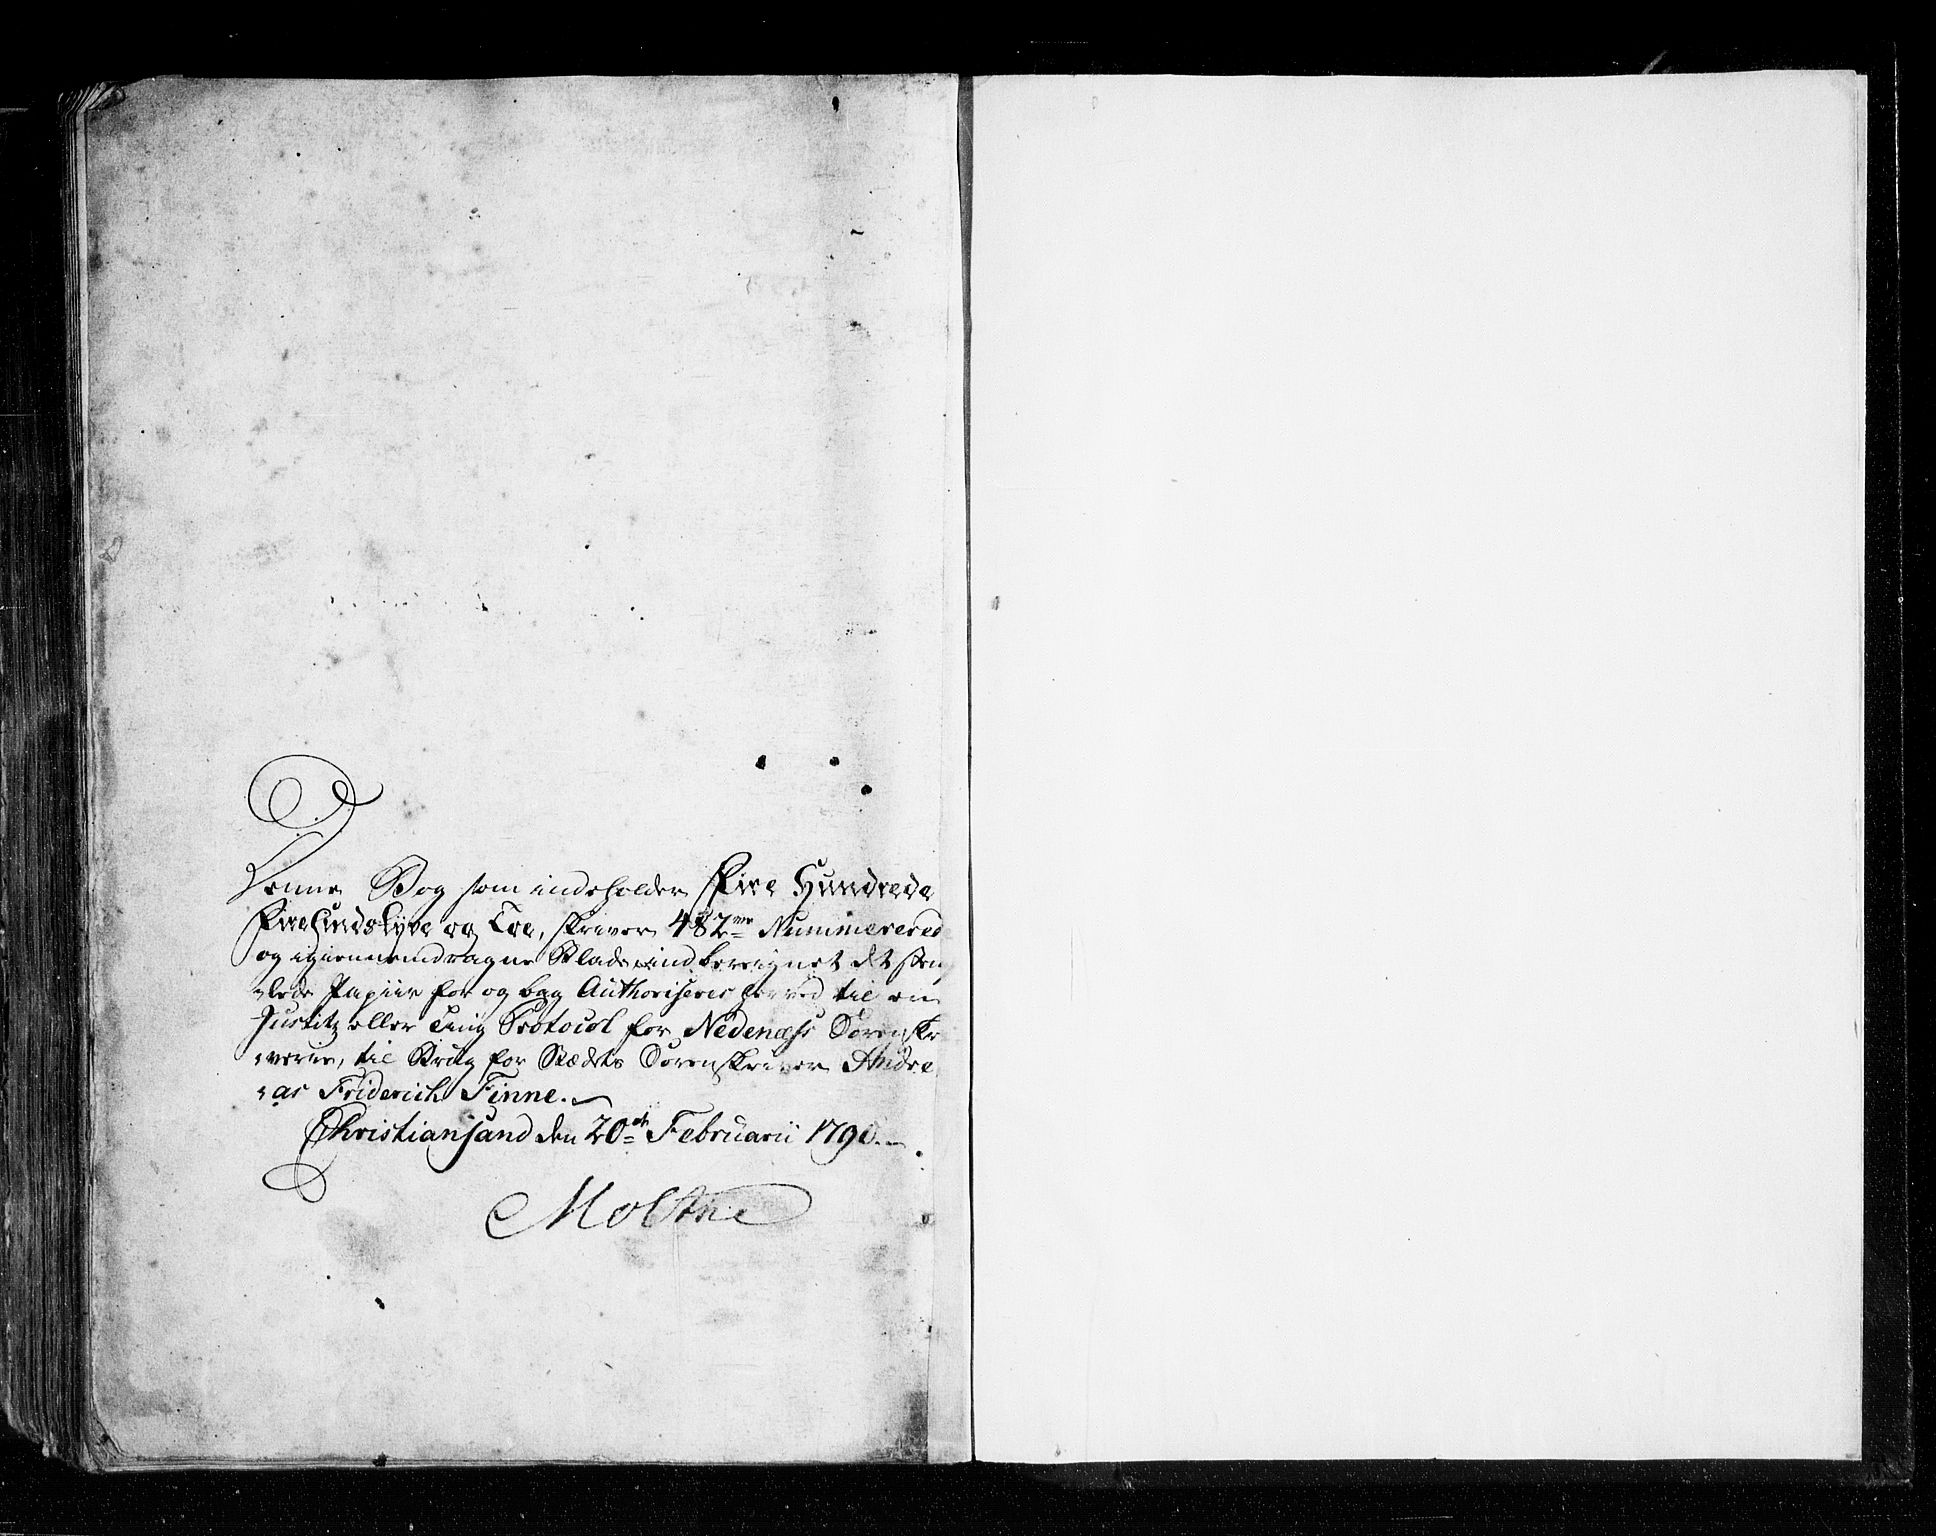 Denne Bog som indeholder Fire Hundrede
Firesindstyve og Toe, skriver 482de Nummererede
og igiennemdragne Blade, indbereignet det stem¬
¬lede Papiir for og bag Authoriseres herved til en
Justitz eller Ting Protocol for Nedenæss Sorenskr
¬verie, til Brug for Stædets Sorenskriver Andre
¬as Friderich Finne.
Christiansand den 20de Februarii 1790.
Moltke